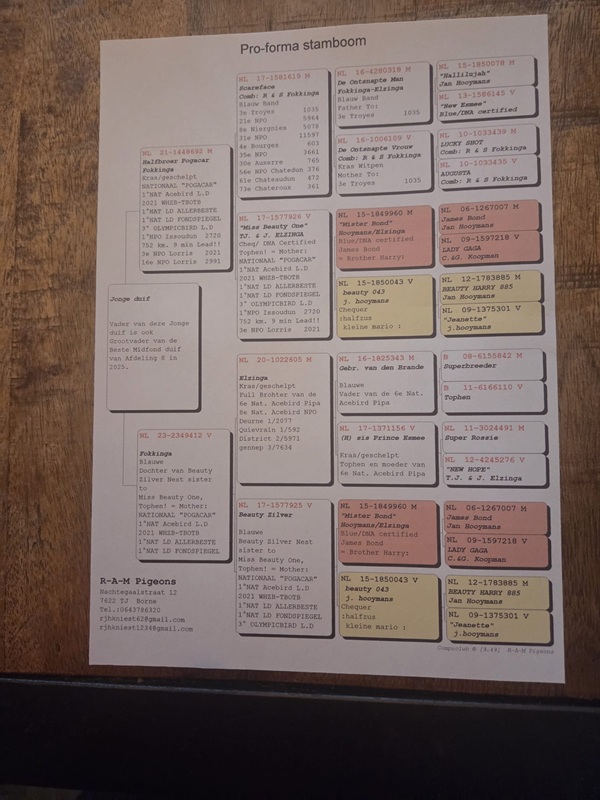 Pro-forma stamboom
Jonge duif
Vader van deze Jonge
duif is ook
Grootvader van de
Beste Midfond duif
van Afdeling 8 in
2025.
NL 21-1448692 M
Halfbroer Pogacar
Fokkinga
Kras/geschelpt
NATIONAAL "POGACAR"
1°NAT Acebird L.D
2021 WHZB-TBOTB
1°NAT LD ALLERBESTE
1°NAT LD FONDSPIEGEL
3° OLYMPICBIRD L.D
1°NPO Issoudun 2720
752 km. 9 min Lead!!
3e NPO Lorris 2021
16e NPO Lorris 2991
NL 23-2349412 V
Fokkinga
Blauwe
Dochter van Beauty
Zilver Nest sister
to
Miss Beauty One,
Tophen! = Mother:
NATIONAAL "POGACAR"
1°NAT Acebird L.D
2021 WHZB-TBOTB
1°NAT LD ALLERBESTE
1°NAT LD FONDSPIEGEL
NL 17-1581619 M
Scareface
Comb: R & S Fokkinga
Blauw Band
3e Troyes 1035
21e NPO 5964
8e Niergnies 5078
31e NPO 11597
4e Bourges 603
35e NPO 3661
30e Auxerre 765
56e NPO Chatedun 376
61e Chateaudun 472
73e Chateroux 361
NL 17-1577926 V
"Miss Beauty One"
TJ. & J. ELZINGA
Cheq/ DNA Certified
Tophen! = Mother:
NATIONAAL "POGACAR"
1°NAT Acebird L.D
2021 WHZB-TBOTB
1°NAT LD ALLERBESTE
1°NAT LD FONDSPIEGEL
3° OLYMPICBIRD L.D
1°NPO Issoudun 2720
752 km. 9 min Lead!!
3e NPO Lorris 2021
NL 20-1022605 M
Elzinga
Kras/geschelpt
Full Brohter van de
6e Nat. Acebird Pipa
8e Nat. Acebird NPO
Deurne 1/2077
Quievrain 1/592
District 2/5971
gennep 3/7634
NL 17-1577925 V
Beauty Silver
Blauwe
Beauty Zilver Nest
sister to
Miss Beauty One,
Tophen! = Mother:
NATIONAAL "POGACAR"
1°NAT Acebird L.D
2021 WHZB-TBOTB
1°NAT LD ALLERBESTE
1°NAT LD FONDSPIEGEL
3° OLYMPICBIRD L.D
NL 16-4280318 M
De Ontsnapte Man
Fokkinga-Elsinga
Blauw Band
Father To:
3e Troyes 1035
NL 16-1006109 V
De Ontsnapte Vrouw
Comb: R & S Fokkinga
Kras Witpen
Mother To:
3e Troyes 1035
NL 15-1849960 M
"Mister Bond"
Hooymans/Elsinga
Blue/DNA certified
James Bond
= Brother Harry:
NL 15-1850043 V
beauty 043
j. hooymans
Chequer
:halfzus
kleine mario :
NL 16-1825343 M
Gebr. van den Brande
Blauwe
Vader van de 6e Nat.
Acebird Pipa
NL 17-1371156 V
(H) sis Prince Esmee
Kras/geschelpt
Tophen en moeder van
6e Nat. Acebird Pipa
NL 15-1849960 M
"Mister Bond"
Hooymans/Elzinga
Blue/DNA certified
James Bond
= Brother Harry:
NL 15-1850043 V
beauty 043
j. hooymans
Chequer
:halfzus
kleine mario :
NL 15-1850078 M
"Hallilujah"
Jan Hooymans
NL 13-1586145 V
"New Esmee"
Blue/DNA certified
NL 10-1033439 M
LUCKY SHOT
Comb: R & S Fokkinga
NL 10-1033435 V
AUGUSTA
Comb: R & S Fokkinga
NL 06-1267007 M
James Bond
Jan Hooymans
NL 09-1597218 V
LADY GAGA
C.&G. Koopman
NL 12-1783885 M
BEAUTY HARRY 885
Jan Hooymans
NL 09-1375301 V
"Jeanette"
j.hooymans
B 08-6155842 M
Superbreeder
B 11-6166110 V
Tophen
NL 11-3024491 M
Super Rossie
NL 12-4245276 V
"NEW HOPE"
T.J. & J. Elzinga
NL 06-1267007 M
James Bond
Jan Hooymans
NL 09-1597218 V
LADY GAGA
C.&G. Koopman
NL 12-1783885 M
BEAUTY HARRY 885
Jan Hooymans
NL 09-1375301 V
"Jeanette"
j.hooymans
R-A-M Pigeons
Nachtegaalstraat 12
7622 TJ Borne
Tel.:0643786320
rjhkniest62@gmail.com
rjhkniest1234@gmail.com
Compuclub © [9.49] R-A-M Pigeons